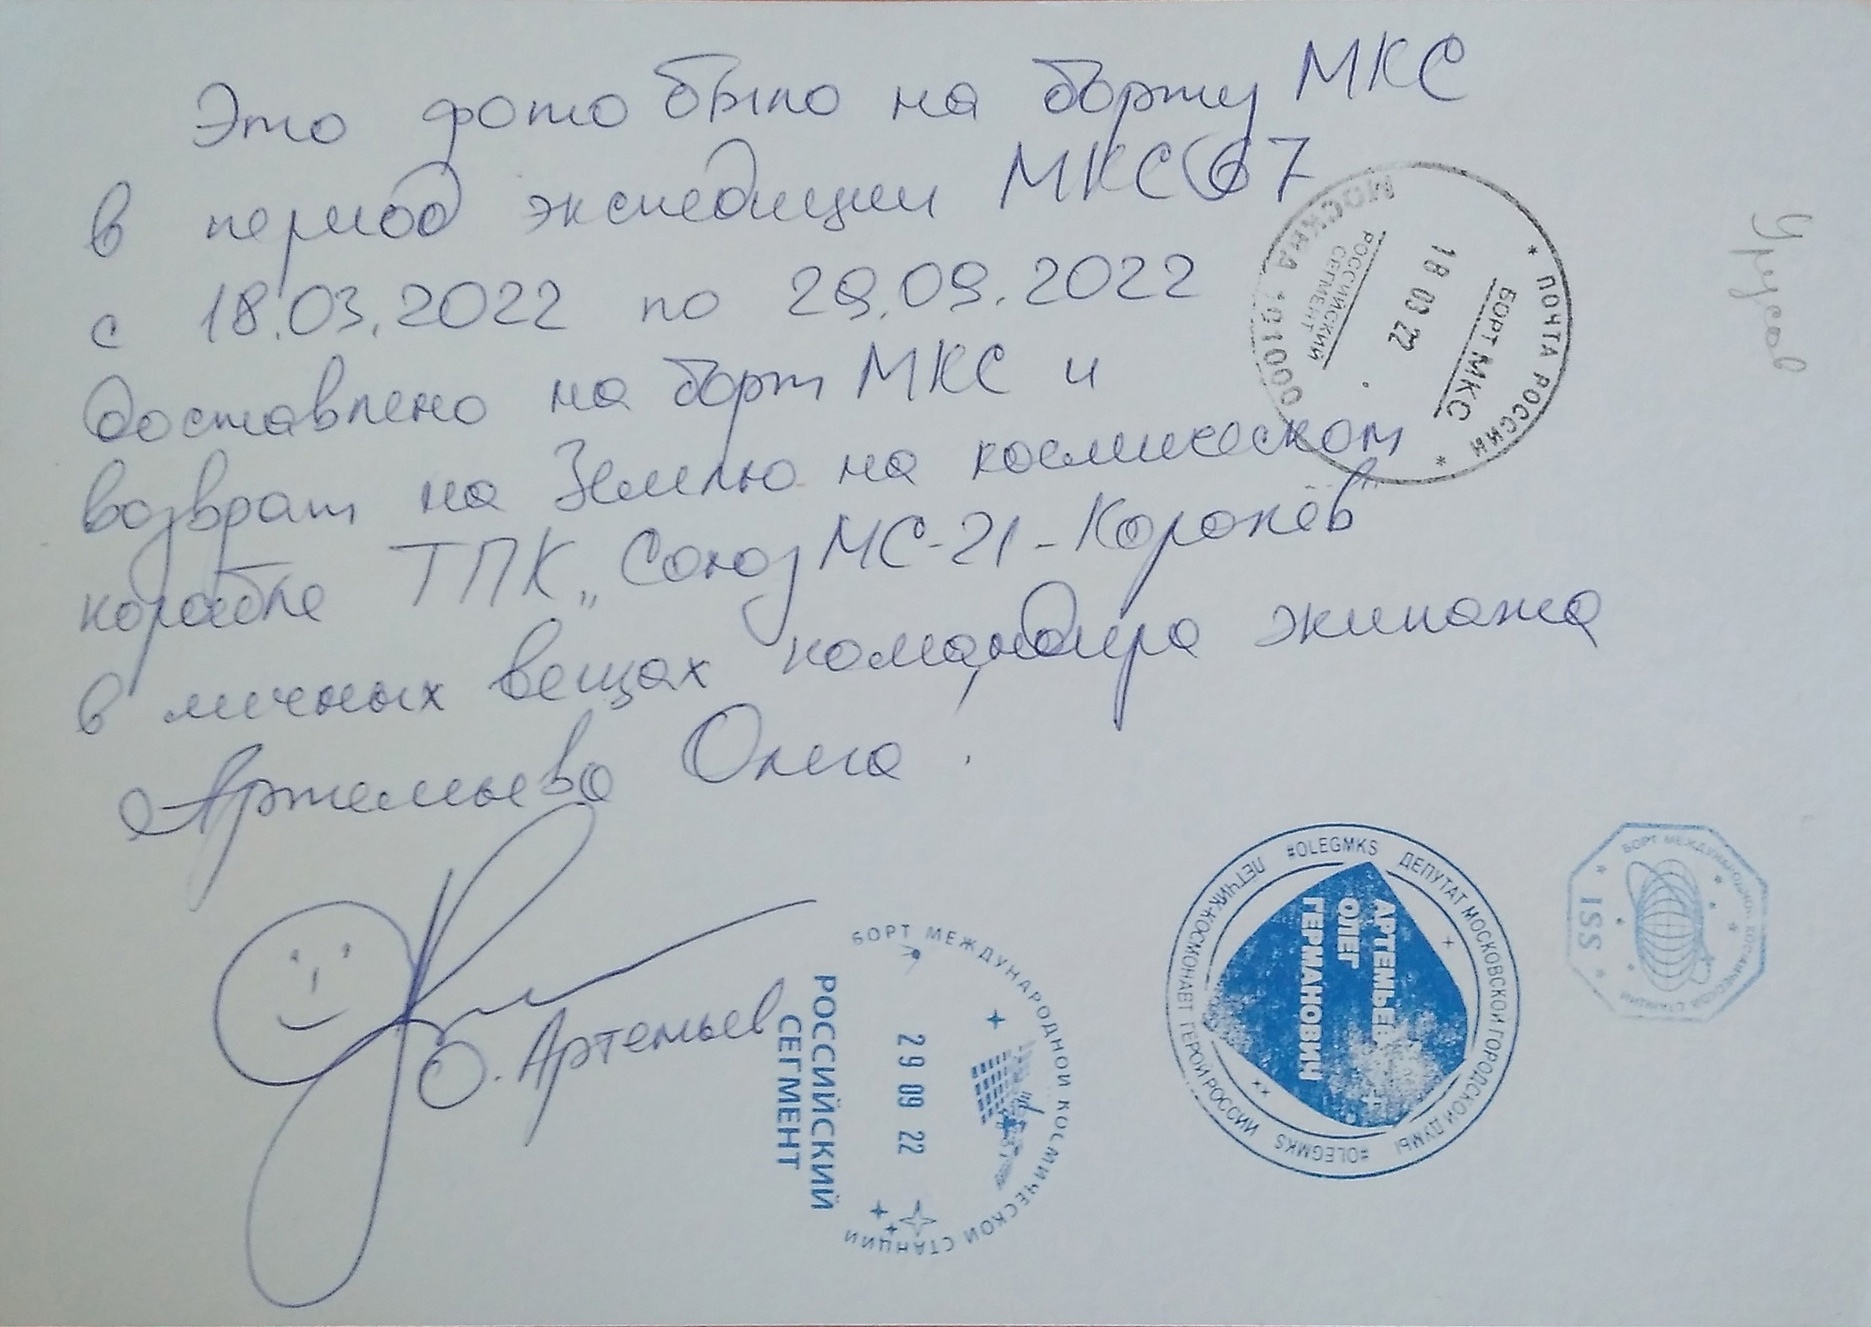 Это фото было на борту МКС
в период экспедиции МКС 67
с 18.03.2022 по 29.09.2022
доставлено на борт МКС и
возврат на Землю на космическом
корабле ТПК „Союз МС-21-Королёв"
в личных вещах командира экипажа
Артемьева Олега.
О. Артемьев
Урусов
* ПОЧТА РОССИИ *
БОРТ МКС
18 03 22
РОССИЙСКИЙ
СЕГМЕНТ
МОСКВА 101000
БОРТ МЕЖДУНАРОДНОЙ КОСМИЧЕСКОЙ СТАНЦИИ
29 09 22
РОССИЙСКИЙ
СЕГМЕНТ
#OLEGMKS ДЕПУТАТ МОСКОВСКОЙ ГОРОДСКОЙ ДУМЫ #OLEGMKS ЛЕТЧИК-КОСМОНАВТ ГЕРОЙ РОССИИ
АРТЕМЬЕВ
ОЛЕГ
ГЕРМАНОВИЧ
БОРТ МЕЖДУНАРОДНОЙ КОСМИЧЕСКОЙ СТАНЦИИ
* ISS *